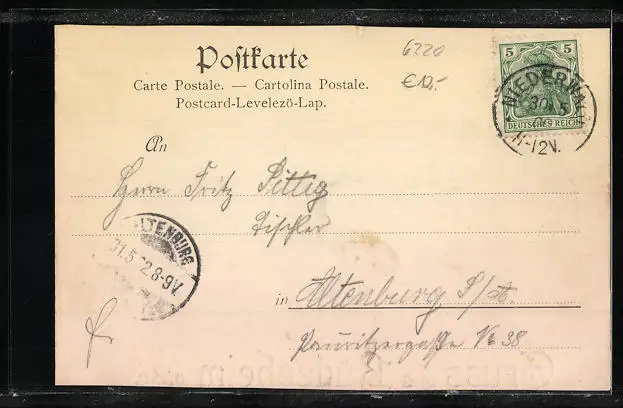 Postkarte
Carte Postale. — Cartolina Postale.
Postcard-Levelezö-Lap.
6220
€12,-
5 5
DEUTSCHES REICH
NIEDERWALD
30 5
11-12V.
An
Herrn Fritz Pittig
Tischler
ALTENBURG
31.5 02 8-9V.
in Altenburg S/A.
Pauritzergasse No 38